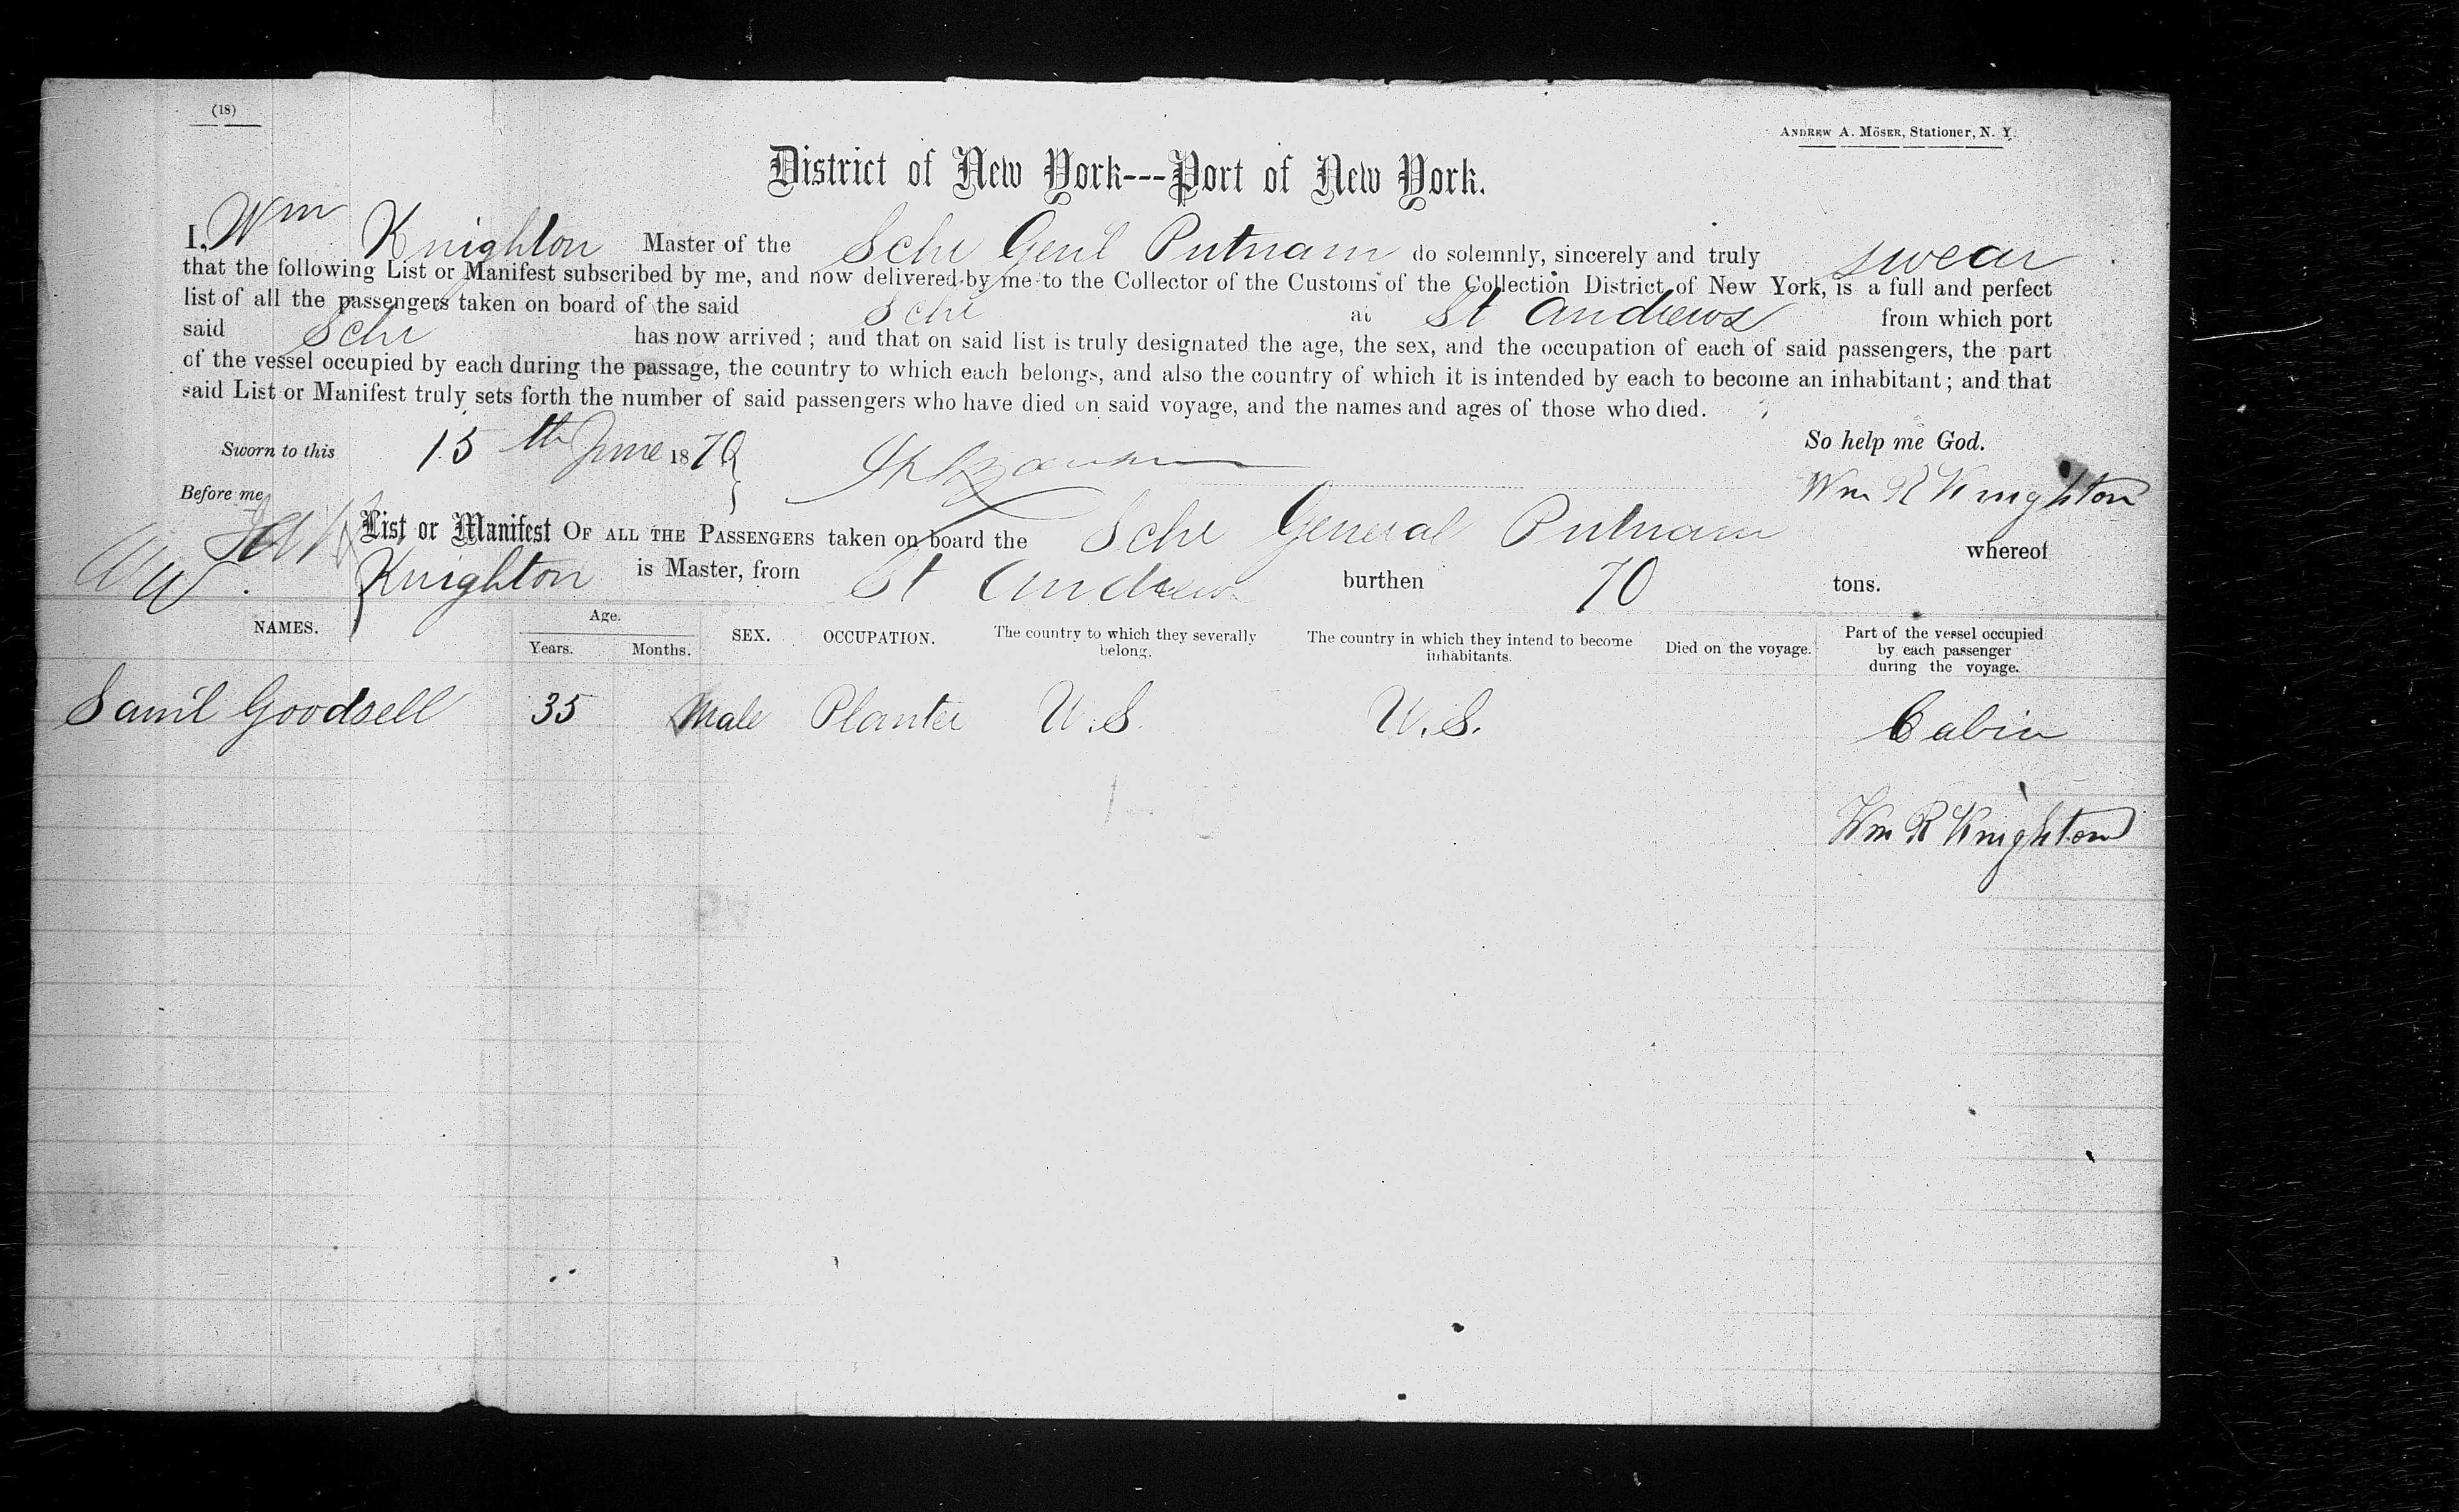 (18)
ANDREW A. MÖSER, Stationer, N. Y.
District of New York---Port of New York.
I, Wm Knighton Master of the Schr Genl Putnam do solemnly, sincerely and truly swear
that the following List or Manifest subscribed by me, and now delivered by me to the Collector of the Customs of the Collection District of New York, is a full and perfect
list of all the passengers taken on board of the said Schr at St Andrews from which port
said Schr has now arrived; and that on said list is truly designated the age, the sex, and the occupation of each of said passengers, the part
of the vessel occupied by each during the passage, the country to which each belongs, and also the country of which it is intended by each to become an inhabitant; and that
said List or Manifest truly sets forth the number of said passengers who have died on said voyage, and the names and ages of those who died.
Sworn to this 15th June 1870 So help me God.
Before me Wm R Knighton
List or Manifest OF ALL THE PASSENGERS taken on board the Schr General Putnam whereof
Knighton is Master, from St Andrews burthen 70 tons.
NAMES. Age. Years. Months. SEX. OCCUPATION. The country to which they severally belong. The country in which they intend to become inhabitants. Died on the voyage. Part of the vessel occupied by each passenger during the voyage.
Saml Goodsell 35 Male Planter U.S. U.S. Cabin
Wm R Knighton